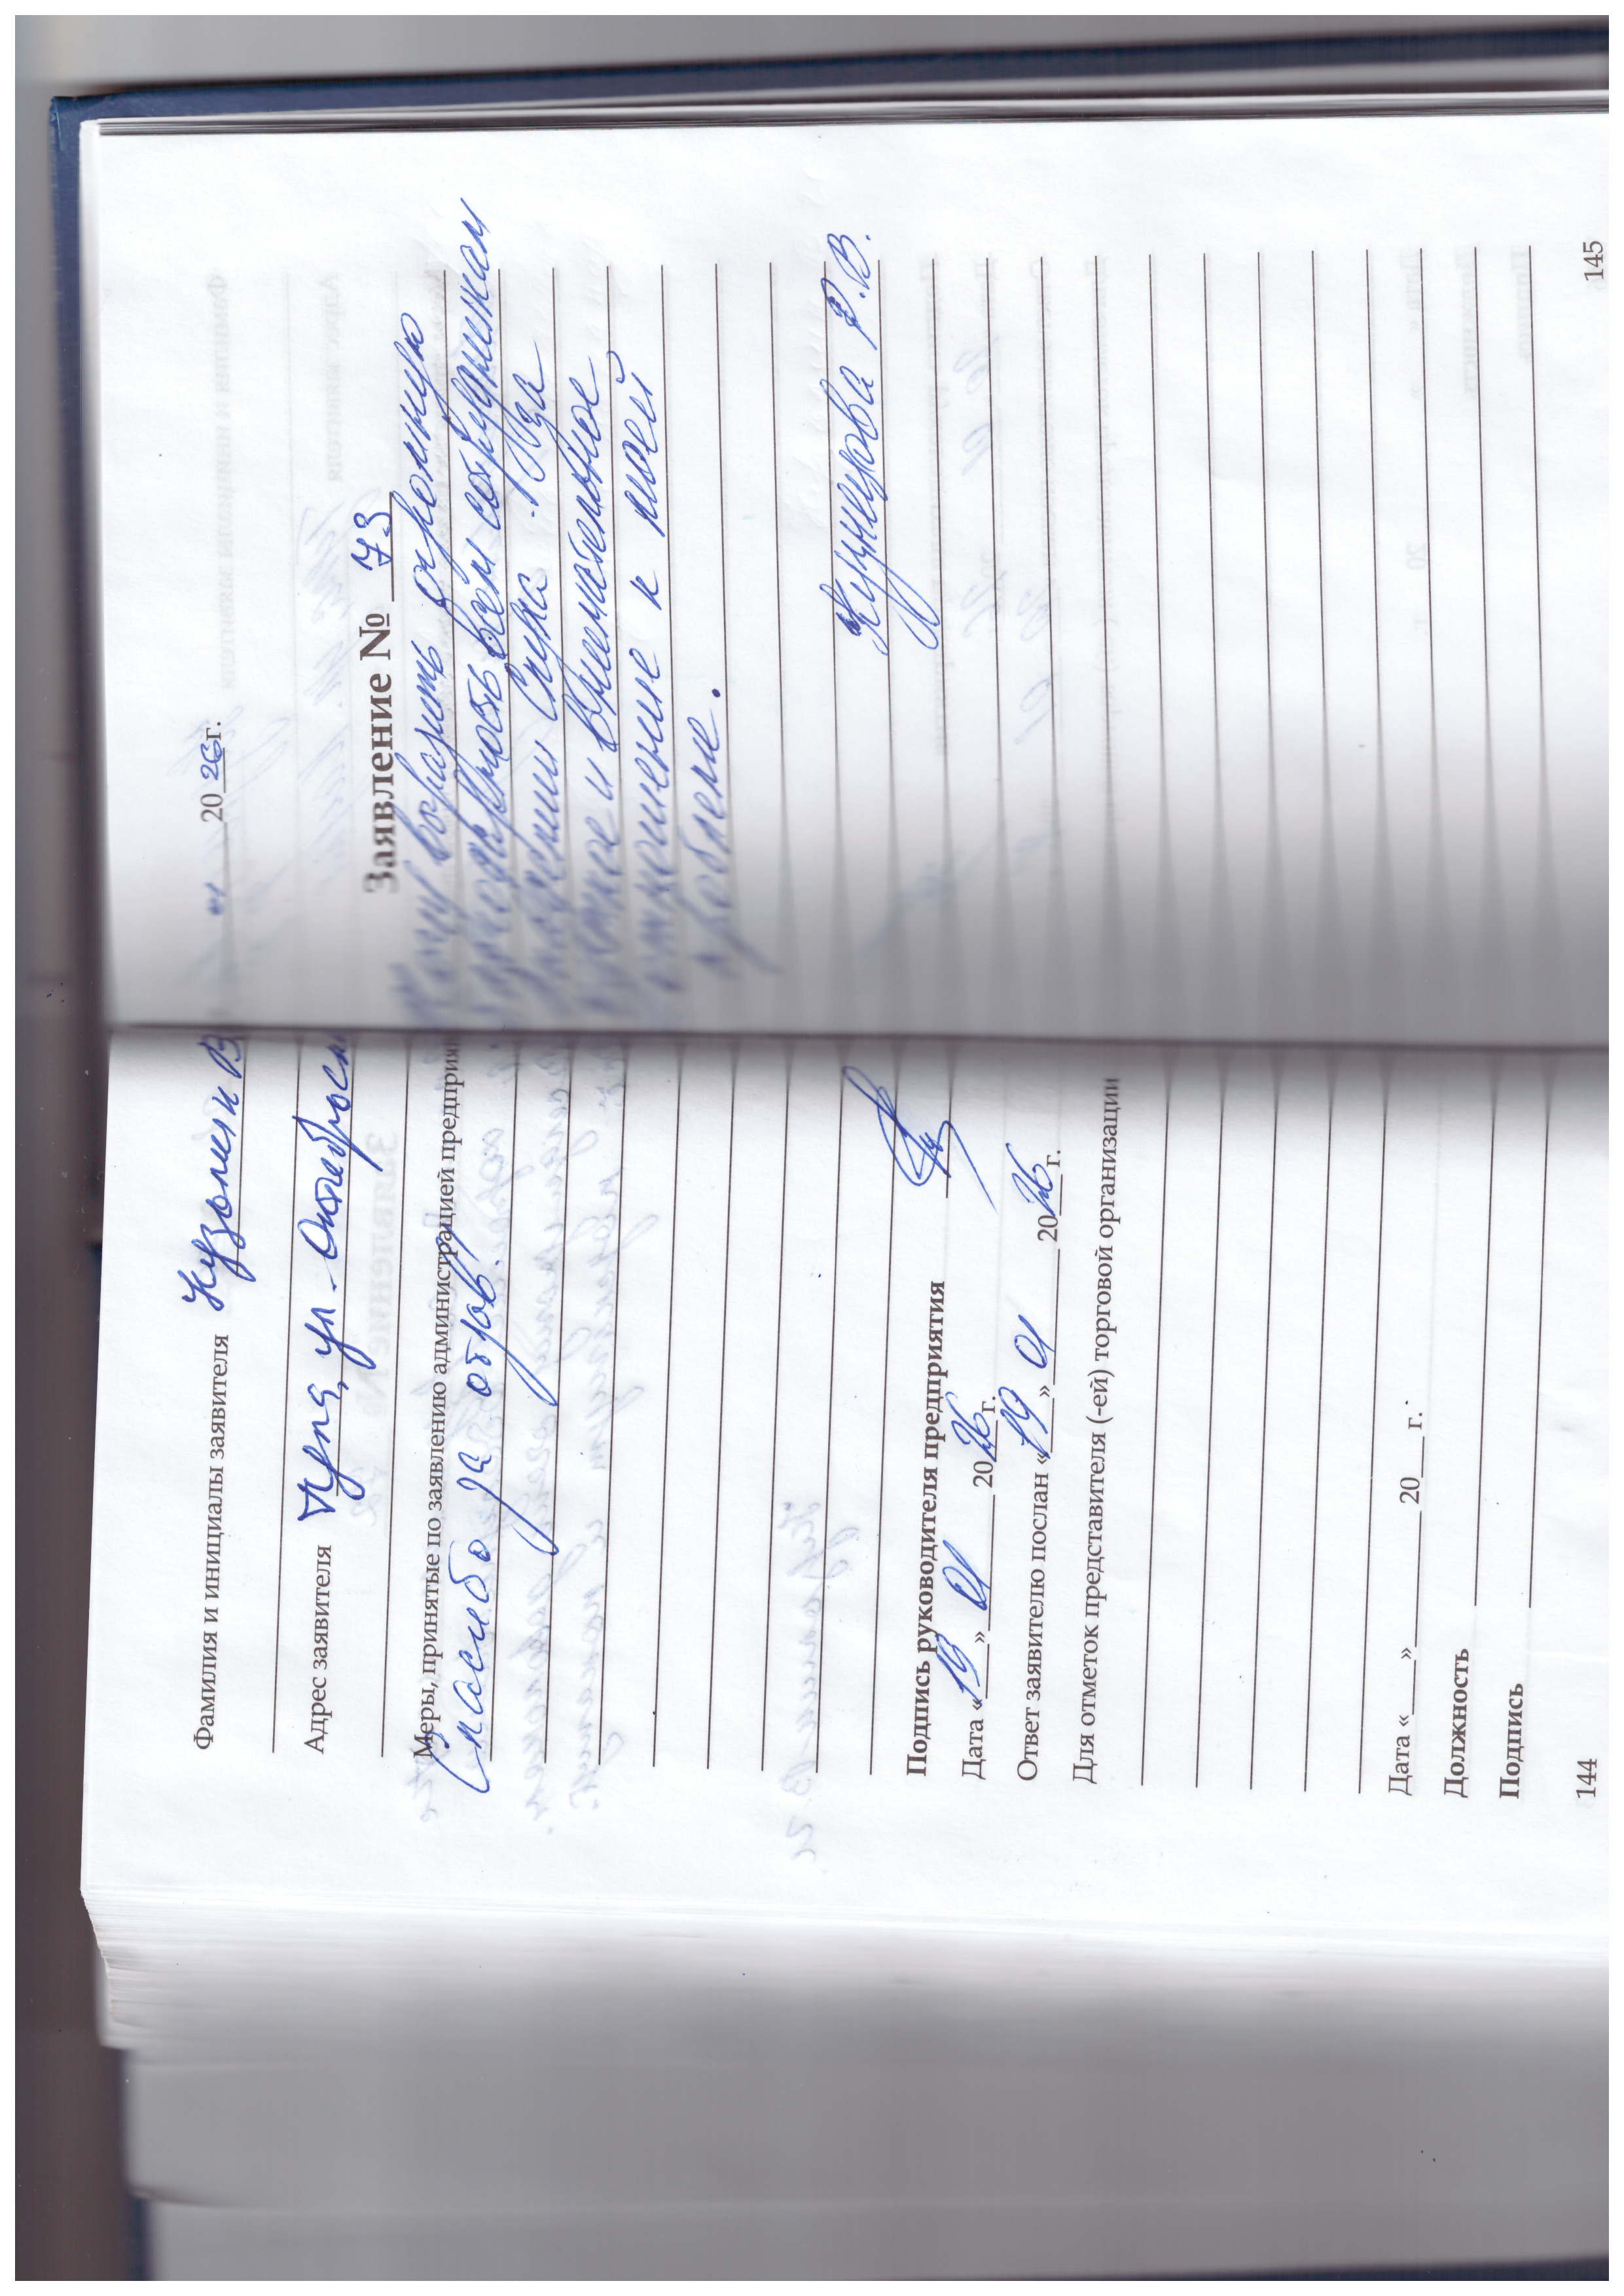 Фамилия и инициалы заявителя Кузьмин В
Адрес заявителя ул. Октябрьск
Меры, принятые по заявлению администрацией предприя
Спасибо за отзыв!
Подпись руководителя предприятия
Дата «19» 01 2026 г.
Ответ заявителю послан «19» 01 2026 г.
Для отметок представителя (-ей) торговой организации
Дата «___» 20__ г.
Должность
Подпись
144
2026 г.
Заявление № 73
Хочу выразить огромную
благодарность всем сотрудникам
за
и внимательное
отношение к моей
проблеме.
Р.В.
145